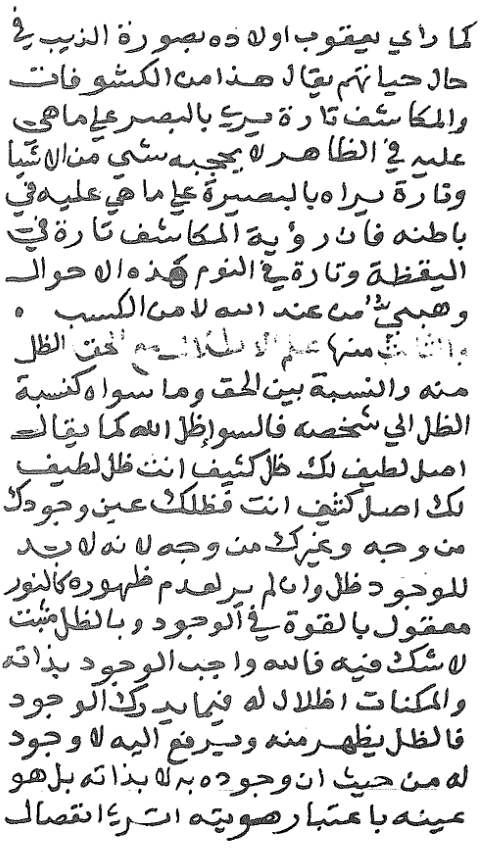 كما راي يعقوب اولاده بصورة الذيب في
حال حياتهم يقال هذا من الكشوفات
والمكاشف تارة يري بالبصر علي ما هي
عليه في الظاهر لا يحجبه شي من الاشيا
وتارة يراه بالبصيرة علي ما هي عليه في
باطنه فان رؤية المكاشف تارة في
اليقظة وتارة في النوم هذه الاحوال
وهبي من عند الله لا من الكسب ٠
منها علم الحق الظل
منه والنسبة بين الحق وما سواه كنسبة
الظل الي شخصه فالسوا ظل الله كما يقال
اصل لطيف لك ظل كثيف انت ظل لطيف
لك اصل كثيف انت فظلك عين وجودك
من وجه وغيرك من وجه لانه لا بد
للوجود ظل وان لم ير لعدم ظهوره كالنور
معقول بالقوة في الوجود وبالظل مثبت
لا شك فيه فالله واجب الوجود بذاته
والمكنات اظلال له فيما يدرك الوجود
فالظل يظهر منه ويرفع اليه لا وجود
له من حيث ان وجوده به لا بذاته بل هو
عينه باعتبار هويته اتري انفصال